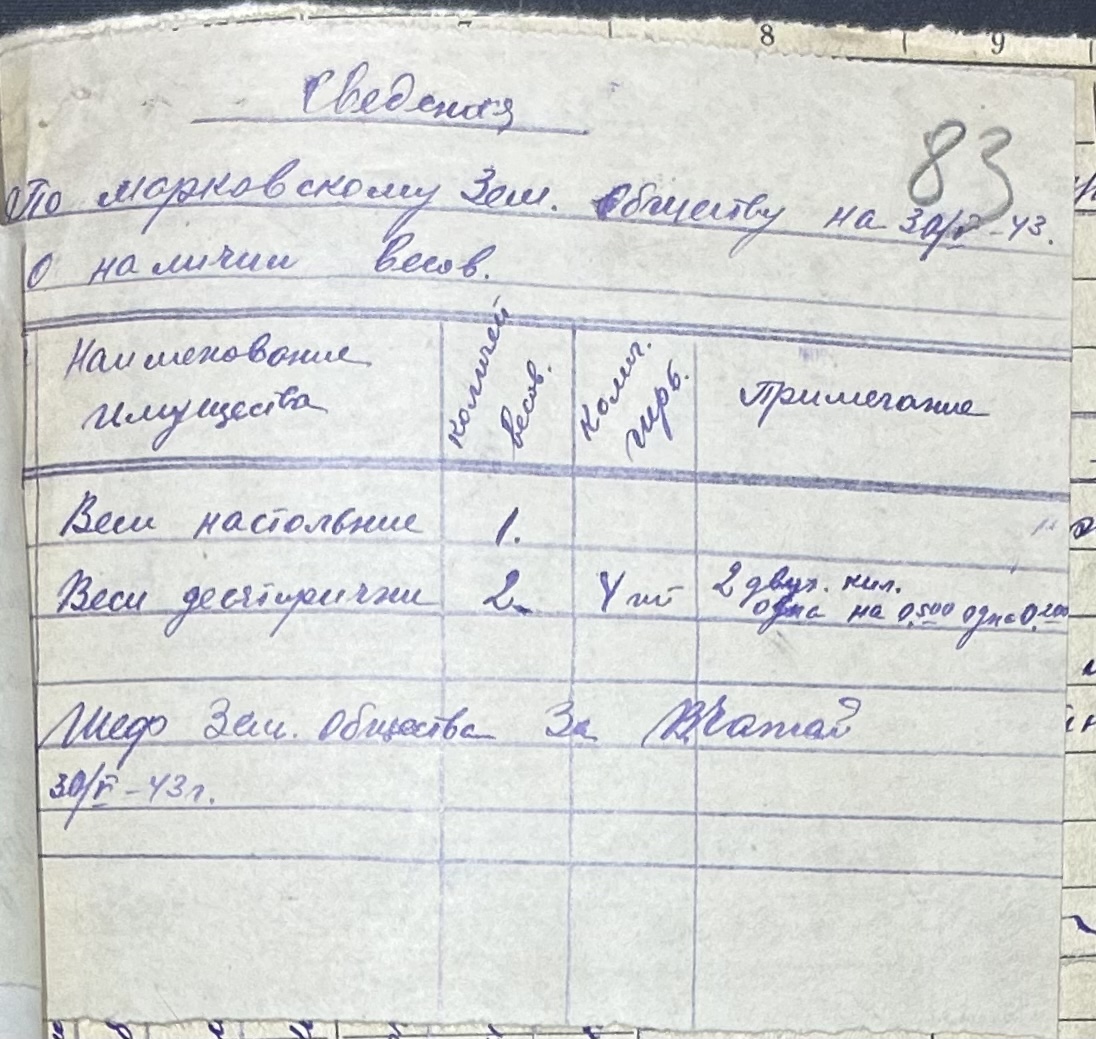 8 9
Сведения
83
По Марковскому Зем. Обществу на 30/V-43.
О наличии Весов.
Наименование имущества
Количей весов.
Колич. гирь.
Примечание
Веси настольние 1.
Веси десятирични 2. 4 шт 2 двух. кил.
одна на 0,500 одна 0,200
Зем. Общества За
30/V-43г.